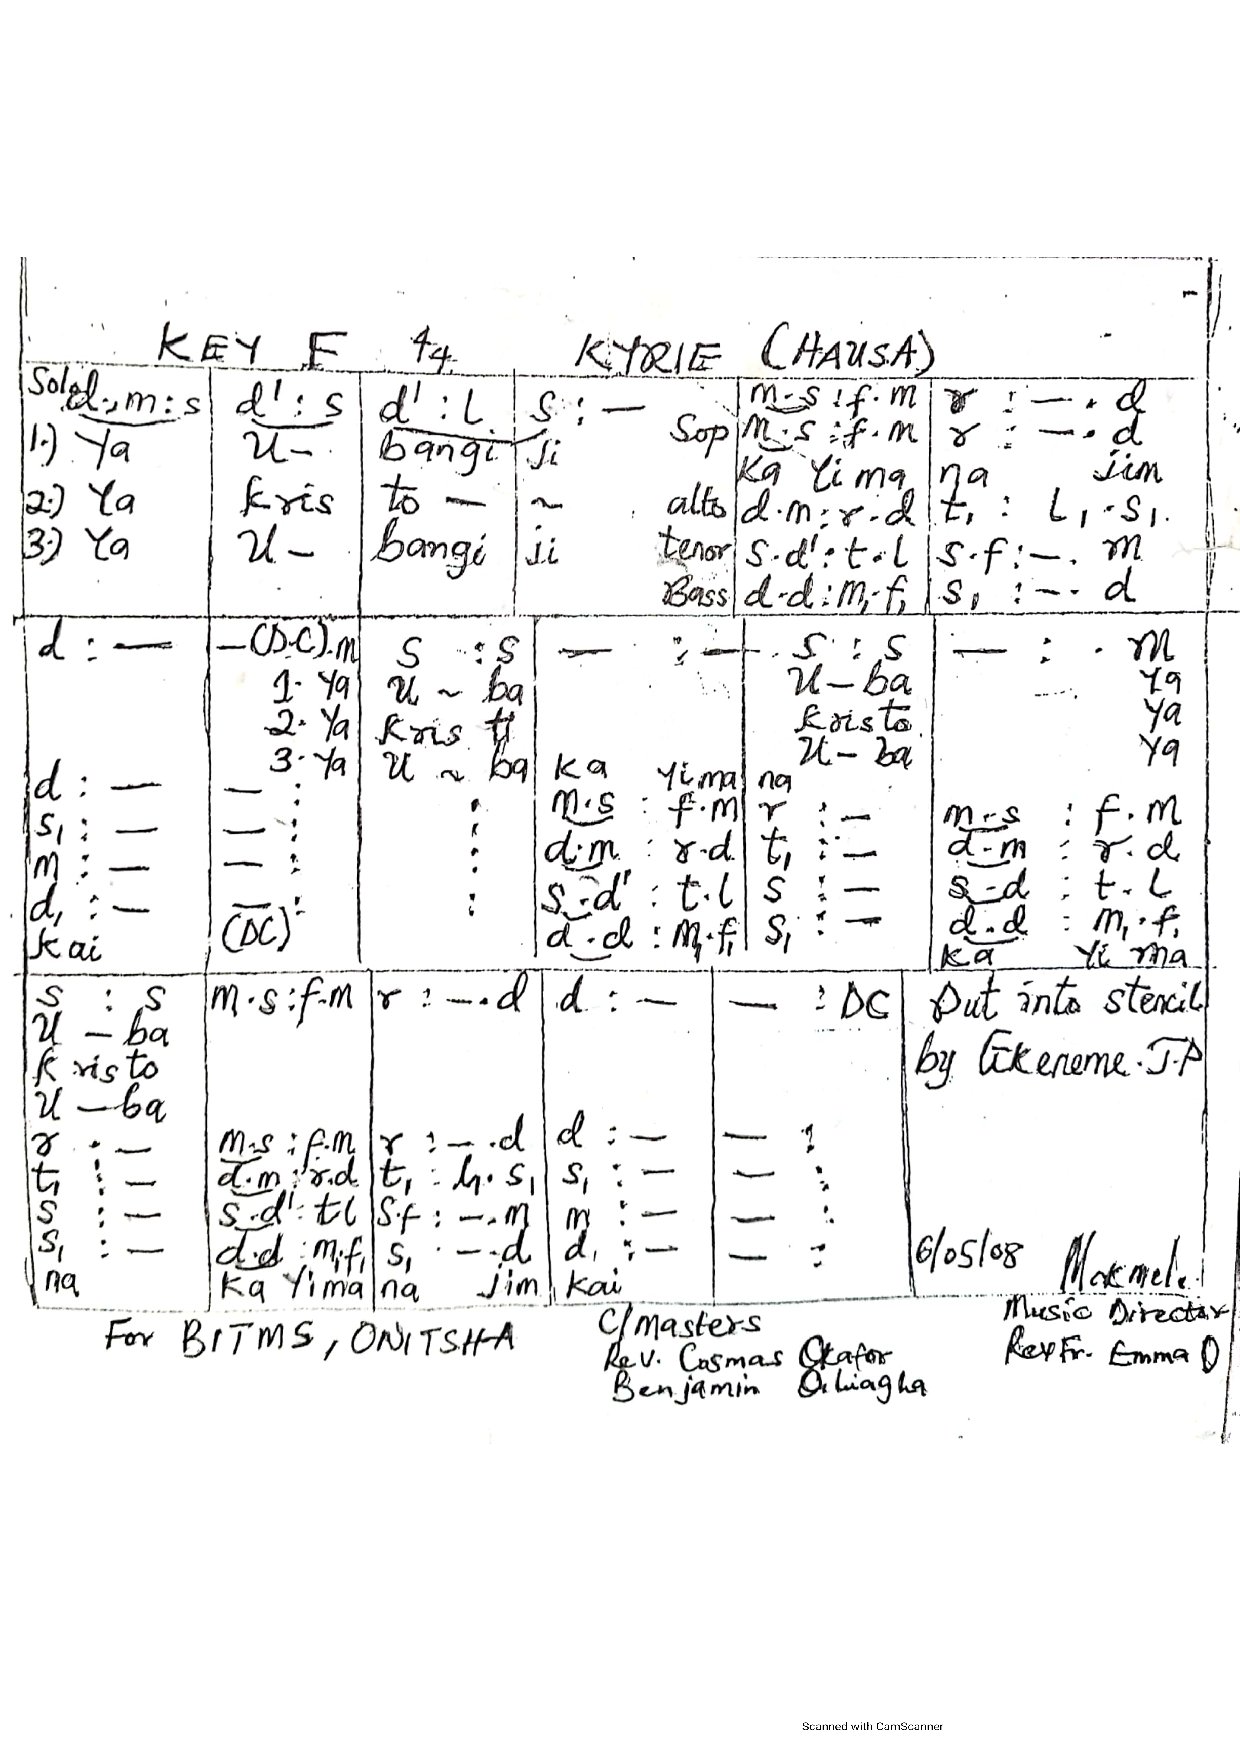 KEY F 4/4 KYRIE (HAUSA)
Solo d., m : s | d' : s | d' : l | s : — | m.s : f.m | r : —. d
1.) Ya | U- | bangi | ji | Sop m.s : f.m | r : —. d
Ka Yi ma | na jim
2.) Ya | Kris | to — | ~ | alto d.m : r.d | t₁ : l₁.s₁.
3.) Ya | U — | bangi | ji | tenor s.d' : t.l | s.f : —. m
Bass d.d : m₁.f₁ | s₁ : —. d
d : — | —(D.C).m | s : s | — : —. | s : s | — : . m
1. Ya | U ~ ba | U — ba | Ya
2. Ya | Kris ti | Kristo | Ya
3. Ya | U ~ ba | U — ba | Ya
d : — | — : | Ka Yi ma | na
: | m.s : f.m | r : — | m.s : f.m
s₁ : — | — : | : | d.m : r.d | t₁ : — | d.m : r.d
m : — | — : | : | s.d' : t.l | s : — | s.d : t.l
d₁ : — | — : | d.d : m₁.f₁ | s₁ : — | d.d : m₁.f₁
Kai | (DC) | Ka Yi ma
s : s | m.s : f.m | r : —.d | d : — | — : DC | Put into stencil
U — ba | by Ekeneme. J.P
Kristo
U — ba
r . — | m.s : f.m | r : —.d | d : — | — :
t₁ : — | d.m : r.d | t₁ : l₁.s₁ | s₁ : — | — :
s : — | s.d' : t l | s.f : —.m | m : — | — :
s₁ : — | d.d : m₁.f₁ | s₁ . —.d | d₁ : — | — : | 6/05/08
na | Ka Yi ma | na jim | Kai
For BITMS, ONITSHA
C/Masters
Rev. Cosmas Okafor
Benjamin
Music Director
Rev Fr. Emma O
Scanned with CamScanner